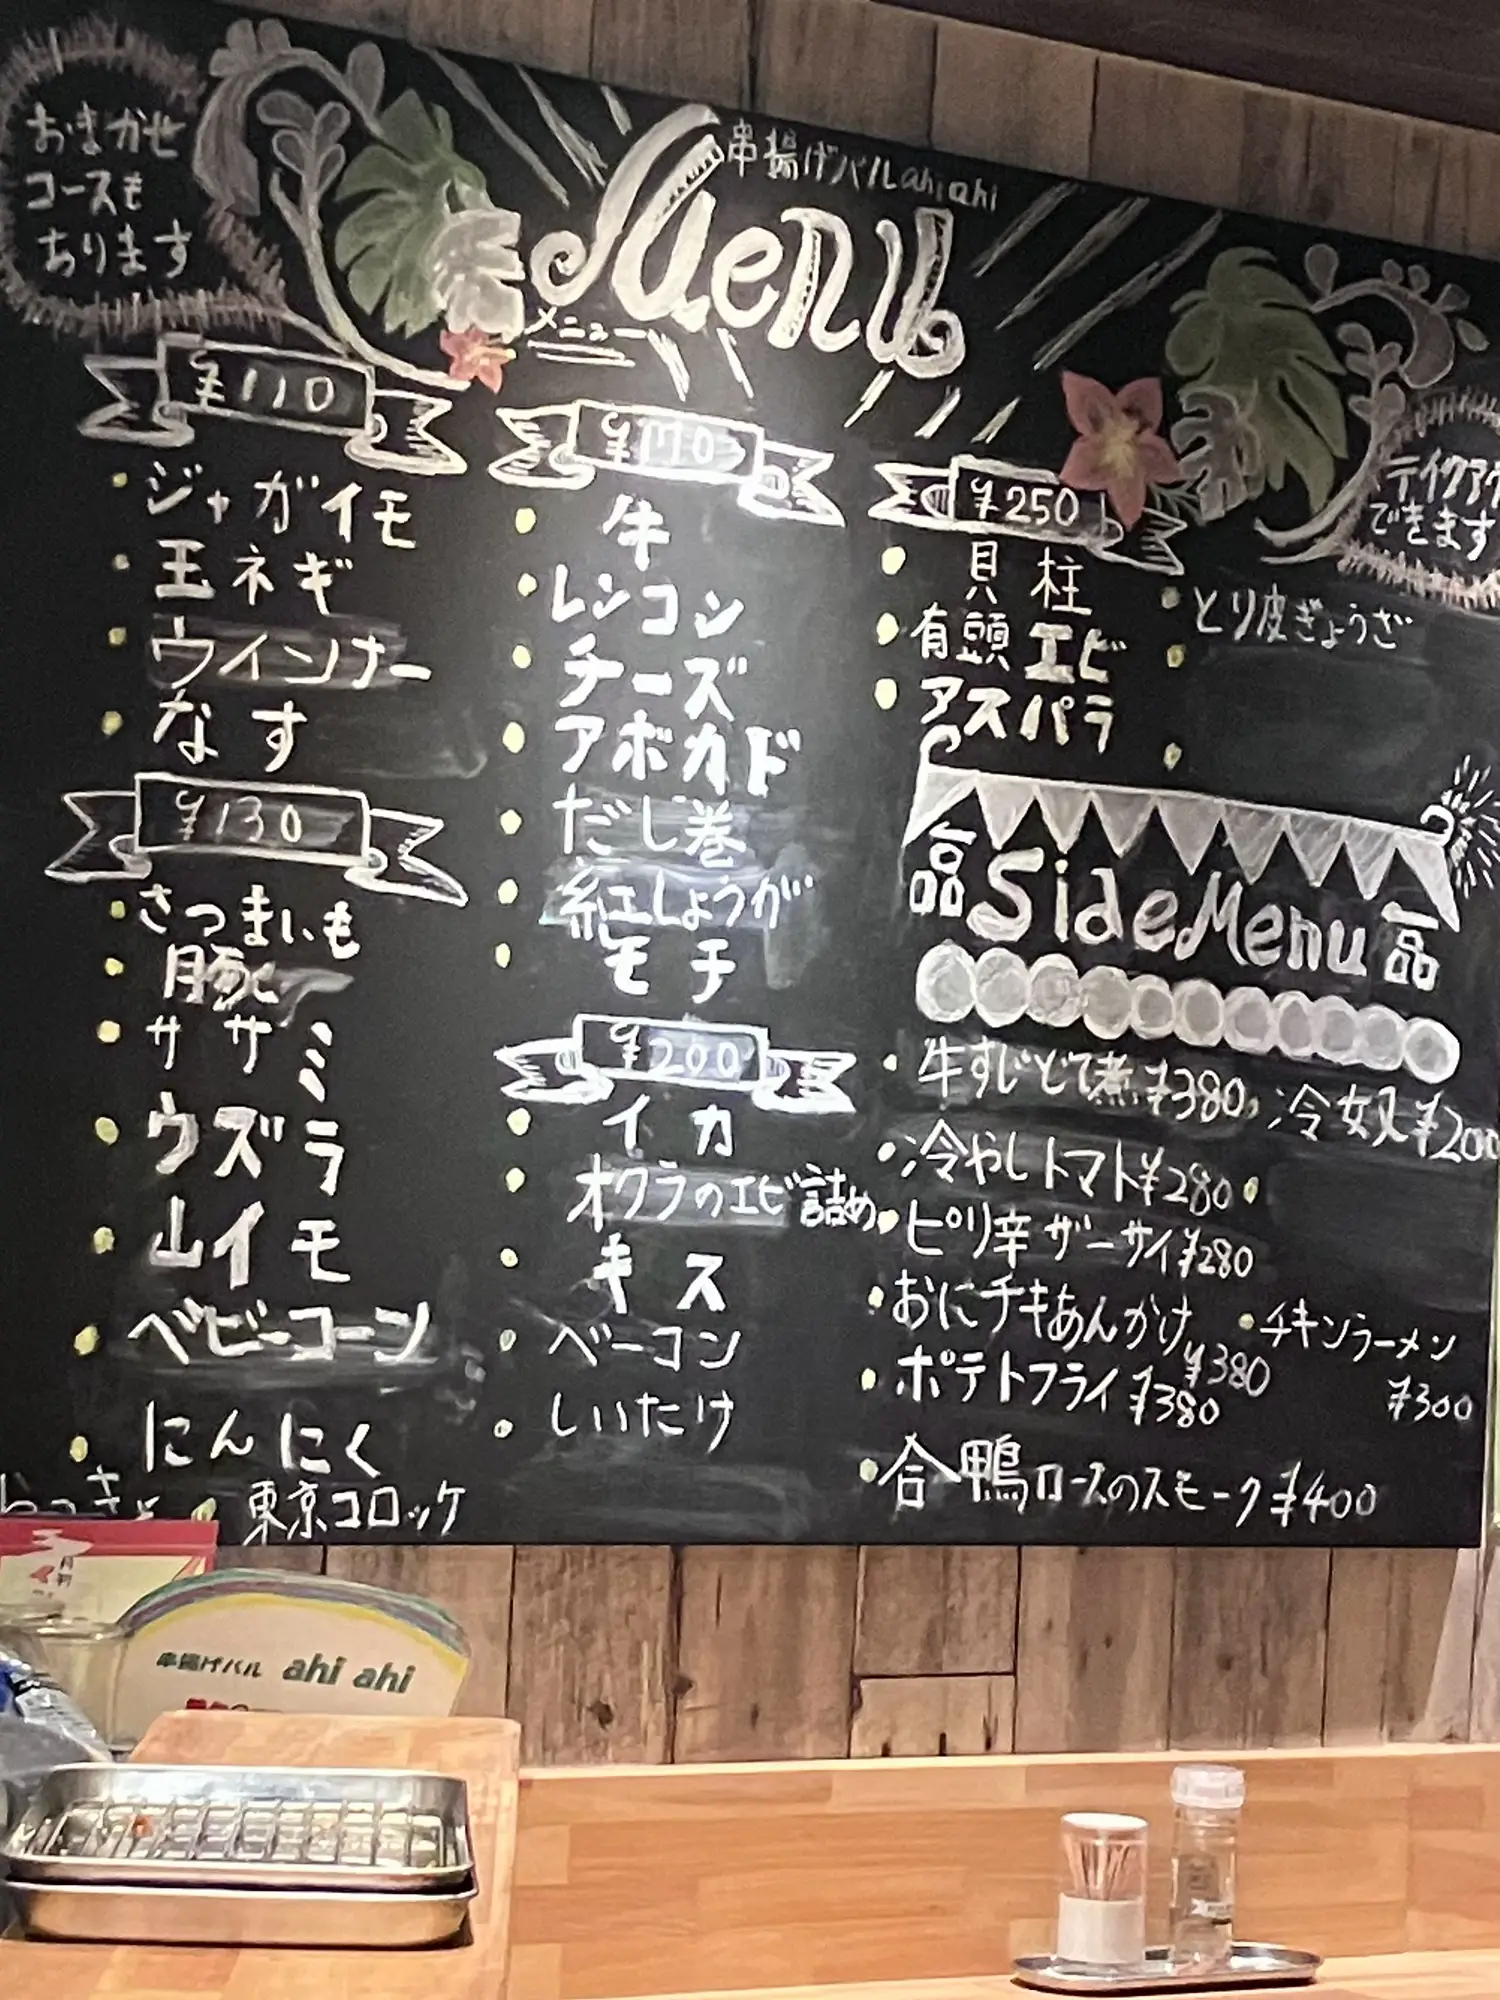 おまかせ
コースも
あります
串揚げバルahiahi
Menu
メニュー
テイクアウ
できます
¥110
ジャガイモ
玉ネギ
ウインナー
なす
¥130
さつまいも
豚ヒレ
ササミ
ウズラ
山イモ
ベビーコーン
にんにく
東京コロッケ
¥170
牛
レンコン
チーズ
アボカド
だし巻
紅しょうが
モチ
¥200
イカ
オクラのエビ詰め
キス
ベーコン
しいたけ
¥250
貝柱
有頭エビ
アスパラ
とり皮ぎょうざ
Side Menu
牛すじどて煮¥380
冷奴¥200
冷やしトマト¥280
ピリ辛ザーサイ¥280
おにチキあんかけ
¥380
チキンラーメン
¥300
ポテトフライ¥380
合鴨ロースのスモーク¥400
串揚げバル ahi ahi